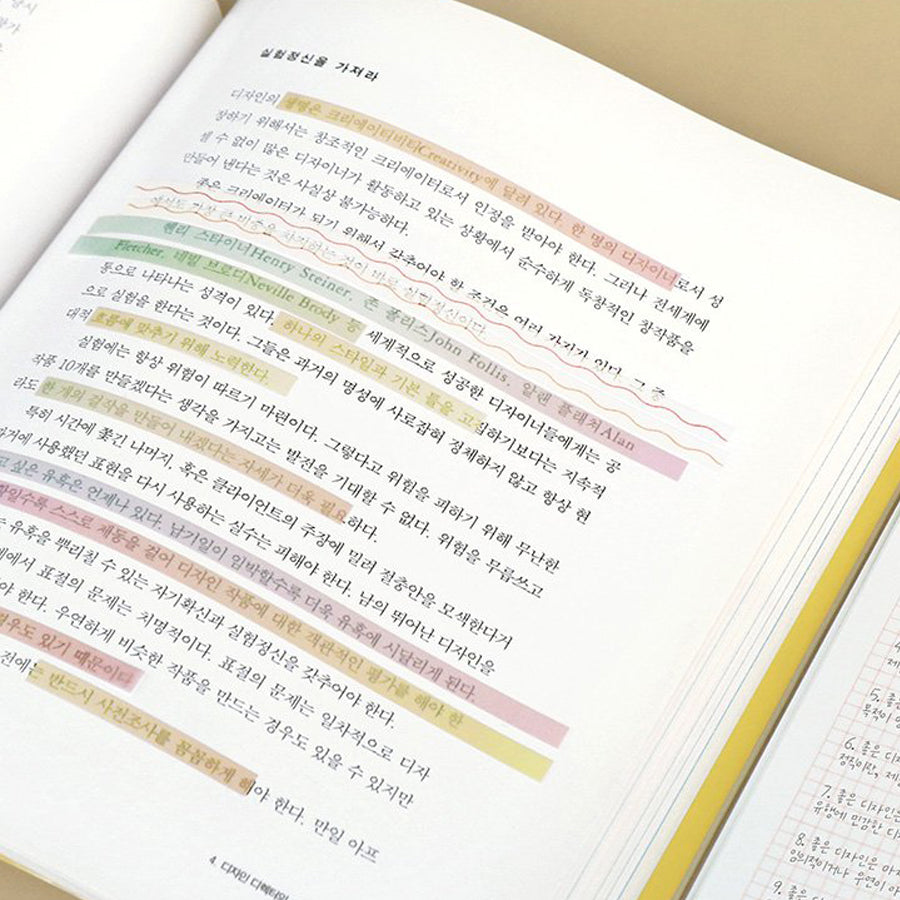 실험정신을 가져라
디자인의 생명은 크리에이티비티Creativity에 달려 있다. 한 명의 디자이너로서 성
장하기 위해서는 창조적인 크리에이터로서 인정을 받아야 한다. 그러나 전세계에
셀 수 없이 많은 디자이너가 활동하고 있는 상황에서 순수하게 독창적인 창작품을
만들어 낸다는 것은 사실상 불가능하다.
좋은 크리에이터가 되기 위해서 갖추어야 할 조건은 여러 가지가 있다. 그 중
에서도 가장 큰 비중을 차지하는 것이 바로 실험정신이다.
헨리 스타이너Henry Steiner, 존 폴리스John Follis, 알랜 플래처Alan
Fletcher, 네빌 브로디Neville Brody 등 세계적으로 성공한 디자이너들에게는 공
통으로 나타나는 성격이 있다. 하나의 스타일과 기본 틀을 고집하기보다는 지속적
으로 실험을 한다는 것이다. 그들은 과거의 명성에 사로잡혀 정체하지 않고 항상 현
대적 흐름에 맞추기 위해 노력한다.
실험에는 항상 위험이 따르기 마련이다. 그렇다고 위험을 피하기 위해 무난한
작품 10개를 만들겠다는 생각을 가지고는 발전을 기대할 수 없다. 위험을 무릅쓰고
라도 한 개의 걸작을 만들어 내겠다는 자세가 더욱 필요하다.
특히 시간에 쫓긴 나머지, 혹은 클라이언트의 주장에 밀려 절충안을 모색한다거
과거에 사용했던 표현을 다시 사용하는 실수는 피해야 한다. 남의 뛰어난 디자인을
고 싶은 유혹은 언제나 있다. 납기일이 임박할수록 더욱 유혹에 시달리게 된다.
할수록 스스로 제동을 걸어 디자인 작품에 대한 객관적인 평가를 해야 한
유혹을 뿌리칠 수 있는 자기확신과 실험정신을 갖추어야 한다.
에서 표절의 문제는 치명적이다. 표절의 문제는 일차적으로 디자
야 한다. 우연하게 비슷한 작품을 만드는 경우도 있을 수 있지만
경우도 있기 때문이다
전에는 반드시 사전조사를 꼼꼼하게 해야 한다. 만일 아프
4 디자인 디렉터인
5. 좋은
목적이
6. 좋은 디
정직이란,
7. 좋은 디자인은
유행에 민감한 디
8. 좋은 디자인은 마지
임의적이거나 우연이
9. 좋은